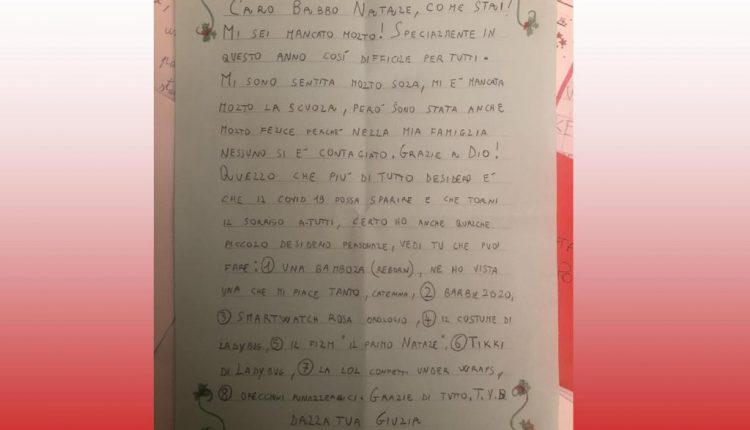 CARO BABBO NATALE, COME STAI!
MI SEI MANCATO MOLTO! SPECIALMENTE IN
QUESTO ANNO COSÍ DIFFICILE PER TUTTI.
MI SONO SENTITA MOLTO SOLA, MI É MANCATA
MOLTO LA SCUOLA, PERÓ SONO STATA ANCHE
MOLTO FELICE PERCHÉ NELLA MIA FAMIGLIA
NESSUNO SI É CONTAGIATO, GRAZIE A DIO!
QUELLO CHE PIÚ DI TUTTO DESIDERO É
CHE IL COVID 19 POSSA SPARIRE E CHE TORNI
IL SORRISO A TUTTI, CERTO HO ANCHE QUALCHE
PICCOLO DESIDERIO PERSONALE, VEDI TU CHE PUOI
FARE: ① UNA BAMBOLA (REBORN), NE HO VISTA
UNA CHE MI PIACE TANTO, CATERINA, ② BARBIE 2020,
③ SMARTWATCH ROSA OROLOGIO, ④ IL COSTUME DI
LADYBUG, ⑤ IL FILM "IL PRIMO NATALE", ⑥ TIKKI
DI LADYBUG, ⑦ LA LOL CONFETTI UNDER WRAPS,
⑧ ORECCHINI ANALLERGICI. GRAZIE DI TUTTO, T.V.B
DALLA TUA GIULIA